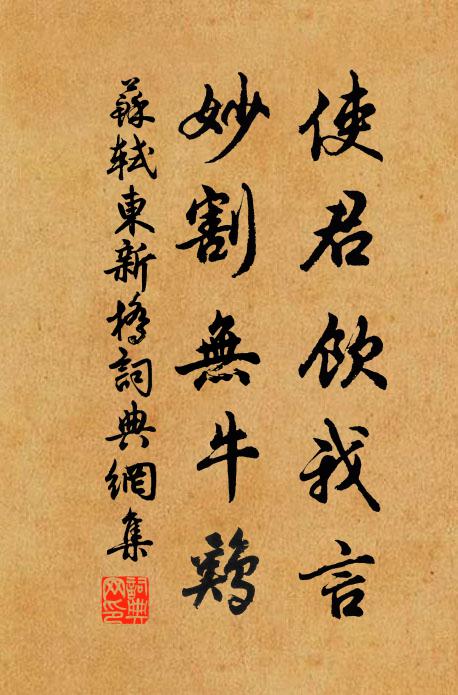 使君飲我言
妙割無牛鷄
蘇軾東新橋詞典網集
詞典網印